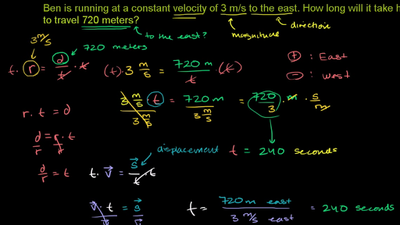 Ben is running at a constant velocity of 3 m/s to the east. How long will it take h
to travel 720 meters?
to the east?
magnitude
direction
3 m/s
720 meters
t · r = d/t · t
(t) · 3 m/s = 720 m/t (t)
+ : East
− : West
3 m/s · t / 3 m/s = 720 m / 3 m/s = 720/3 · m · s/m
r · t = d
d/r = r·t/r
displacement
t = 240 seconds
d/r = t
t · v = s/t · t
v · t / v = s / v
t = 720 m east / 3 m/s east = 240 seconds